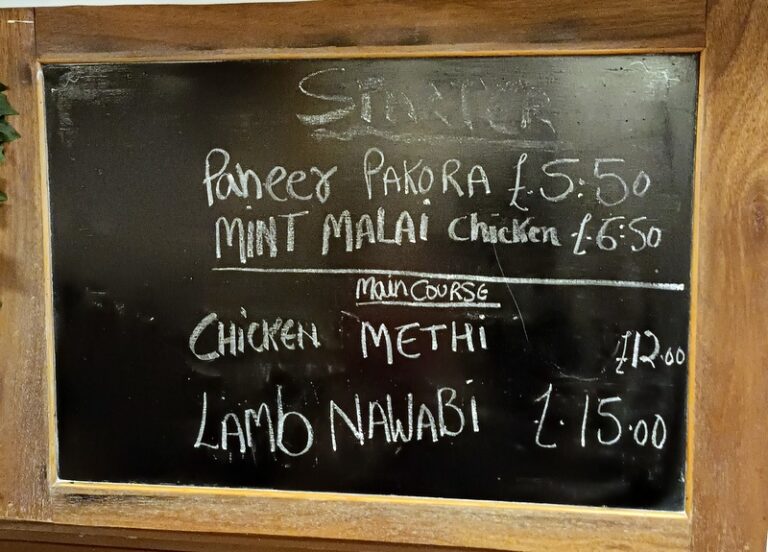 STARTER
Paneer PAKORA £.5:50
MINT MALAi Chicken £6:50
Main COURSE
CHICKEN METHI £12.00
LAMb NAWABi £.15.00